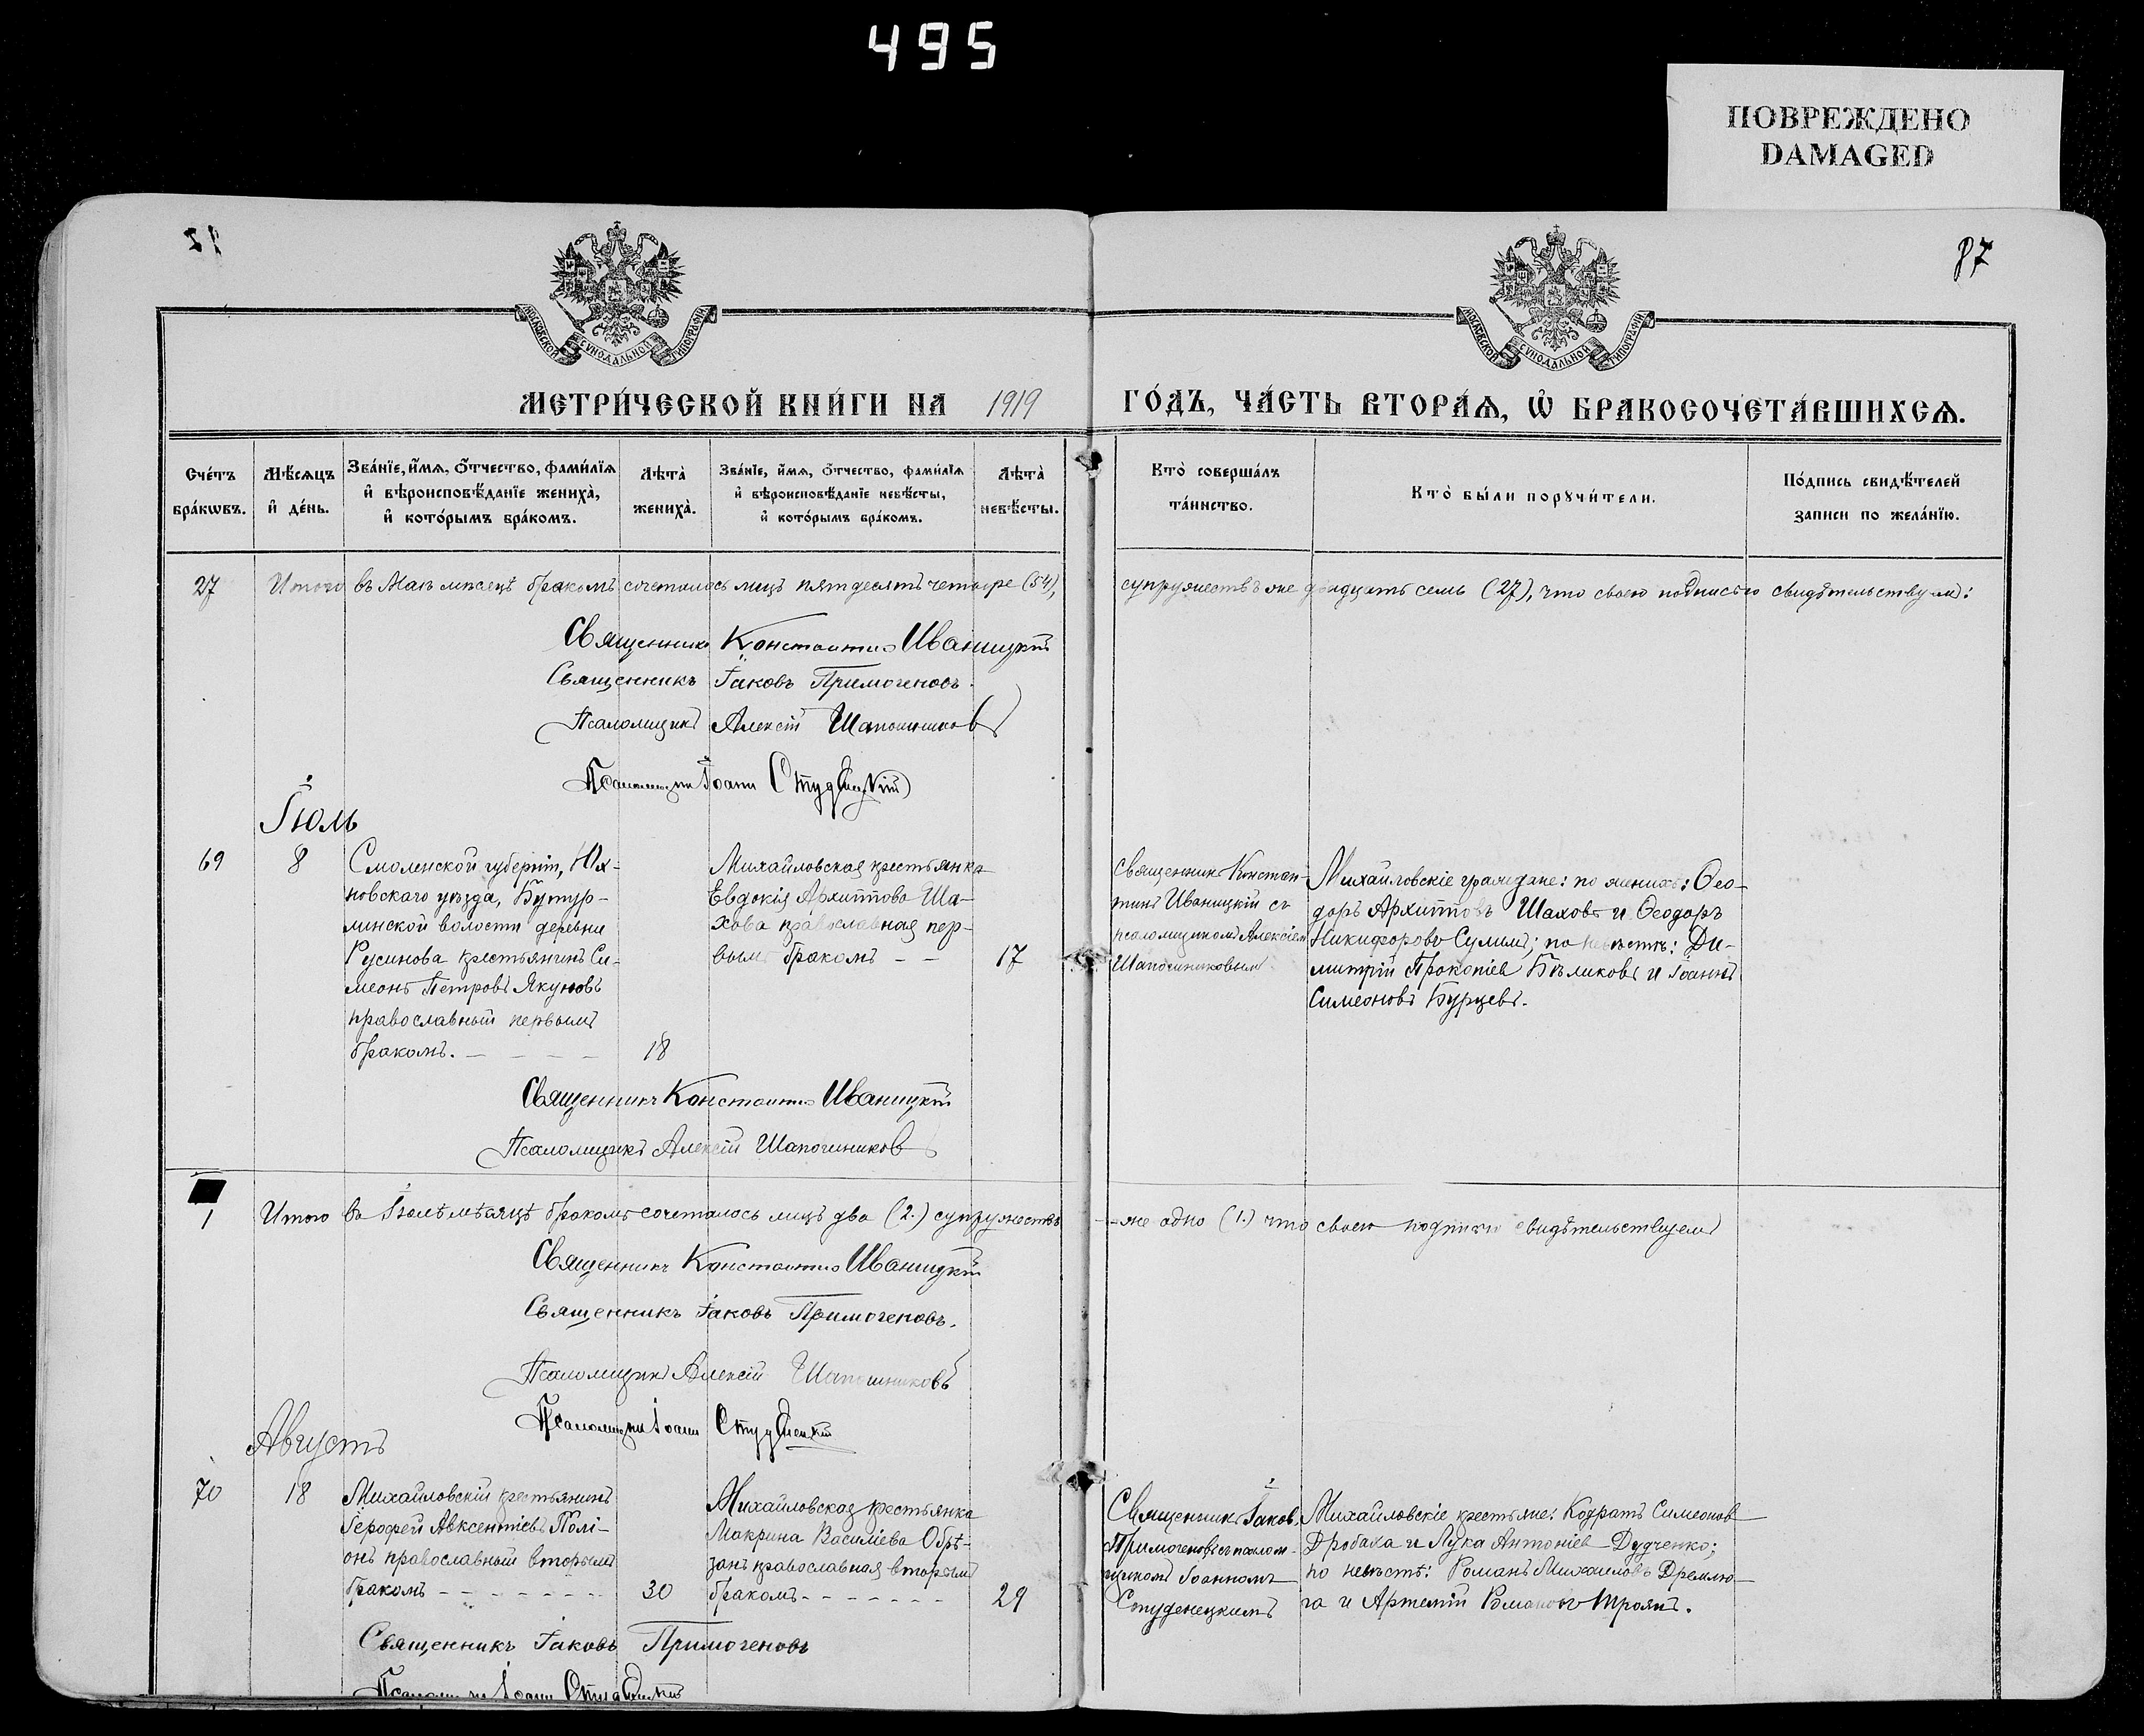 495
ПОВРЕЖДЕНО
DAMAGED
87
МОСКОВСКОЙ СѴНОДАЛЬНОЙ ТИПОГРАФІИ
МОСКОВСКОЙ СѴНОДАЛЬНОЙ ТИПОГРАФІИ
МЕТРИ́ЧЕСКОЙ КНИ́ГИ НА 1919 ГО́ДЪ, ЧА́СТЬ ВТОРА́Ѧ, Ѡ҆ БРАКОСОЧЕТА́ВШИХСѦ.
Сче́тъ
бра́кѡвъ.
Мѣ́сѧцъ
и҆ де́нь.
Зва́нїе, и҆́мѧ, ѻ҆́тчество, фами́лїѧ
и҆ вѣроисповѣ́данїе жениха̀,
и҆ кото́рымъ бра́комъ.
Лѣта̀
жениха̀.
Зва́нїе, и҆́мѧ, ѻ҆́тчество, фами́лїѧ
и҆ вѣроисповѣ́данїе невѣ́сты,
и҆ кото́рымъ бра́комъ.
Лѣта̀
невѣ́сты.
Кто̀ соверша́лъ
та́инство.
Кто̀ бы́ли порꙋчи́тели.
По́дпись свидѣ́телей
записи по жела́нїю.
27 Итого въ Маѣ мѣсяцѣ бракомъ сочеталось лицъ пятдесятъ четыре (54), супружествъ же двадцать семь (27), что своею подписью свидѣтельствуемъ:
Священникъ Константинъ Иваницкій
Священникъ Іаковъ Примогеновъ.
Псаломщикъ Алексій Шапошниковъ
Псаломщикъ Іоаннъ Студенецкій
Іюль
69 8
Смоленской губерніи, Юх-
новскаго уѣзда, Бутур-
линской волости деревни
Русинова крестьянинъ Си-
меонъ Петровъ Якуновъ
православный первымъ
бракомъ. — — — — 18
Михайловская крестьянка
Евдокія Архиппова Ша-
хова православная пер-
вымъ бракомъ — — 17
Священникъ Констан-
тинъ Иваницкій съ
псаломщикомъ Алексіемъ
Шапошниковымъ
Михайловскіе граждане: по женихѣ: Ѳео-
доръ Архипповъ Шаховъ и Ѳеодоръ
Никифоровъ Сулимъ; по невѣстѣ: Ди-
митрій Прокопіевъ Бѣликовъ и Іоаннъ
Симеоновъ Бурцевъ.
Священникъ Константинъ Иваницкій
Псаломщикъ Алексій Шапошниковъ
1 Итого въ Іюлѣ мѣсяцѣ бракомъ сочеталось лицъ два (2.) супружествъ же одно (1.) что своею подписью свидѣтельствуемъ
Священникъ Константинъ Иваницкій
Священникъ Іаковъ Примогеновъ.
Псаломщикъ Алексій Шапошниковъ
Псаломщикъ Іоаннъ Студенецкій
Августъ
70 18
Михайловскій крестьянинъ
Іерофей Авксентіевъ Полі-
онъ православный вторымъ
бракомъ — — — — — — 30
Михайловская крестьянка
Макрина Василіева Обрѣ-
занъ православная вторымъ
бракомъ — — — — — — 29
Священникъ Іаковъ
Примогеновъ съ псалом-
щикомъ Іоанномъ
Студенецкимъ
Михайловскіе крестьяне: Кодратъ Симеоновъ
Дробаха и Лука Антоніевъ Дудченко;
по невѣстѣ: Романъ Михаиловъ Дремлю-
га и Артемій Романовъ Троянъ.
Священникъ Іаковъ Примогеновъ
Псаломщикъ Іоаннъ Студенецкій